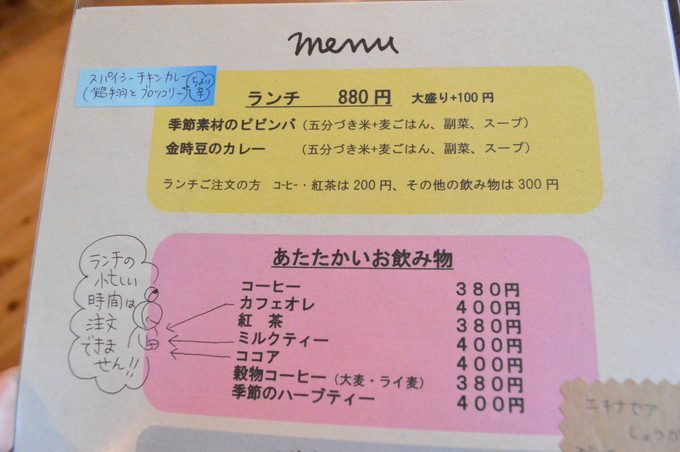 menu
スパイシーチキンカレー
(鶏手羽とブロッコリー) ちょい辛
ランチ 880円 大盛り+100円
季節素材のピビンバ (五分づき米+麦ごはん、副菜、スープ)
金時豆のカレー (五分づき米+麦ごはん、副菜、スープ)
ランチご注文の方 コーヒー・紅茶は200円、その他の飲み物は300円
あたたかいお飲み物
コーヒー 380円
カフェオレ 400円
紅 茶 380円
ミルクティー 400円
ココア 400円
穀物コーヒー (大麦・ライ麦) 380円
季節のハーブティー 400円
ランチの
忙しい
時間は
注文
できま
せん!!
エキナセア
しょうが